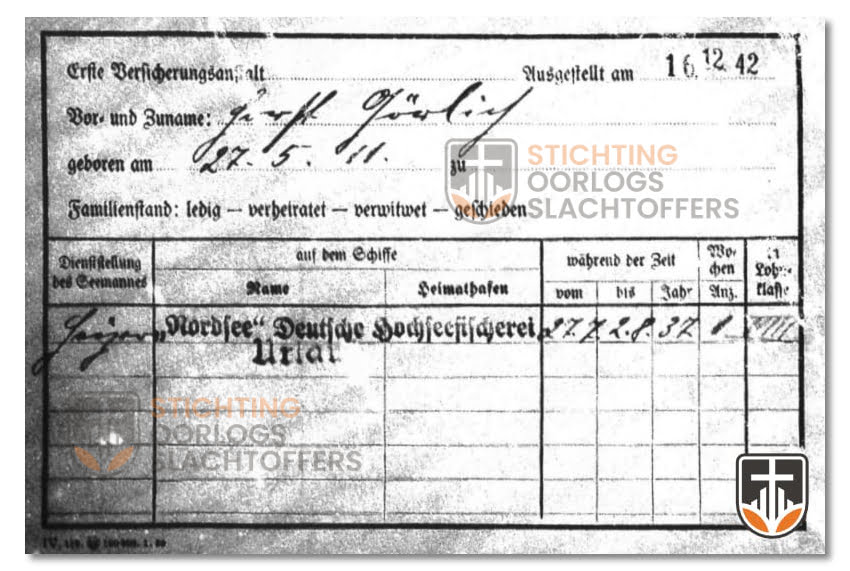 Erste Versicherungsanstalt Ausgestellt am 16.12.42
Vor- und Zuname: Horst Görlich
geboren am 27.5.11. zu
STICHTING
OORLOGS
SLACHTOFFERS
Familienstand: ledig — verheiratet — verwitwet — geschieden
Dienststellung des Seemannes
auf dem Schiffe
Name Heimathafen
während der Zeit
vom bis Jahr
Wochen Anz.
Lohnklasse
Heizer „Nordsee“ Deutsche Hochseefischerei 27.7. 2.8. 37 1
STICHTING
OORLOGS
SLACHTOFFERS